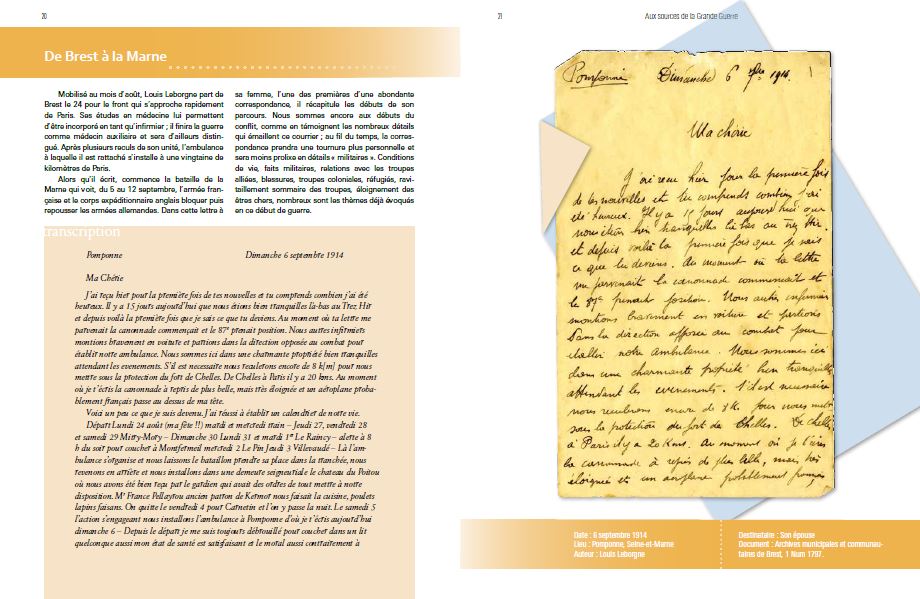 20
De Brest à la Marne
Mobilisé au mois d'août, Louis Leborgne part de
Brest le 24 pour le front qui s'approche rapidement
de Paris. Ses études en médecine lui permettent
d'être incorporé en tant qu'infirmier ; il finira la guerre
comme médecin auxiliaire et sera d'ailleurs distin-
gué. Après plusieurs reculs de son unité, l'ambulance
à laquelle il est rattaché s'installe à une vingtaine de
kilomètres de Paris.
Alors qu'il écrit, commence la bataille de la
Marne qui voit, du 5 au 12 septembre, l'armée fran-
çaise et le corps expéditionnaire anglais bloquer puis
repousser les armées allemandes. Dans cette lettre à
sa femme, l'une des premières d'une abondante
correspondance, il récapitule les débuts de son
parcours. Nous sommes encore aux débuts du
conflit, comme en témoignent les nombreux détails
qui émaillent ce courrier ; au fil du temps, la corres-
pondance prendra une tournure plus personnelle et
sera moins prolixe en détails « militaires ». Conditions
de vie, faits militaires, relations avec les troupes
alliées, blessures, troupes coloniales, réfugiés, ravi-
taillement sommaire des troupes, éloignement des
êtres chers, nombreux sont les thèmes déjà évoqués
en ce début de guerre.
transcription
Pomponne Dimanche 6 septembre 1914
Ma Chérie
J'ai reçu hier pour la première fois de tes nouvelles et tu comprends combien j'ai été
heureux. Il y a 15 jours aujourd'hui que nous étions bien tranquilles là-bas au Trez Hir
et depuis voilà la première fois que je sais ce que tu deviens. Au moment où ta lettre me
parvenait la canonnade commençait et le 87e prenait position. Nous autres infirmiers
montions bravement en voiture et partions dans la direction opposée au combat pour
établir notre ambulance. Nous sommes ici dans une charmante propriété bien tranquilles
attendant les evenements. S'il est necessaire nous reculerons encore de 8 k[m] pour nous
mettre sous la protection du fort de Chelles. De Chelles à Paris il y a 20 kms. Au moment
où je t'écris la canonnade a repris de plus belle, mais très éloignée et un aéroplane proba-
blement français passe au dessus de ma tête.
Voici un peu ce que je suis devenu. J'ai réussi à établir un calendrier de notre vie.
Départ Lundi 24 août (ma fête !!) mardi et mercredi train – Jeudi 27, vendredi 28
et samedi 29 Mitry-Mory – Dimanche 30 Lundi 31 et mardi 1er Le Raincy – alerte à 8
h du soir pour coucher à Montfermeil mercredi 2 Le Pin Jeudi 3 Villevaudé – Là l'am-
bulance s'organise et nous laissons le bataillon prendre sa place dans la tranchée, nous
revenons en arrière et nous installons dans une demeure seigneuriale le chateau du Poitou
où nous avons été bien reçu par le gardien qui avait des ordres de tout mettre à notre
disposition. Mr France Pellayrou ancien patron de Kermor nous faisait la cuisine, poulets
lapins faisans. On quitte le vendredi 4 pour Carnetin et l'on y passe la nuit. Le samedi 5
l'action s'engageant nous installons l'ambulance à Pomponne d'où je t'écris aujourd'hui
dimanche 6 – Depuis le départ je me suis toujours débrouillé pour coucher dans un lit
quelconque aussi mon état de santé est satisfaisant et le moral aussi contrairement à
21
Aux sources de la Grande Guerre
Pomponne Dimanche 6 7bre 1914.
Ma chérie
J'ai reçu hier pour la première fois
de tes nouvelles et tu comprends combien j'ai
été heureux. Il y a 15 jours aujourd'hui que
nous étions bien tranquilles là bas au Trez Hir.
et depuis voilà la première fois que je sais
ce que tu deviens. Au moment où ta lettre
me parvenait la canonnade commençait et
le 87e prenait position. Nous autres infirmiers
montions bravement en voiture et partions
dans la direction opposée au combat pour
établir notre ambulance. Nous sommes ici
dans une charmante propriété bien tranquilles
attendant les evenements. S'il est necessaire
nous reculerons encore de 8 K. pour nous mettre
sous la protection du fort de Chelles. De Chelles
à Paris il y a 20 Kms. Au moment où je t'écris
la canonnade a repris de plus belle, mais très
éloignée et un aéroplane probablement français
Date : 6 septembre 1914
Lieu : Pomponne, Seine-et-Marne
Auteur : Louis Leborgne
Destinataire : Son épouse
Document : Archives municipales et communau-
taires de Brest, 1 Num 1797.